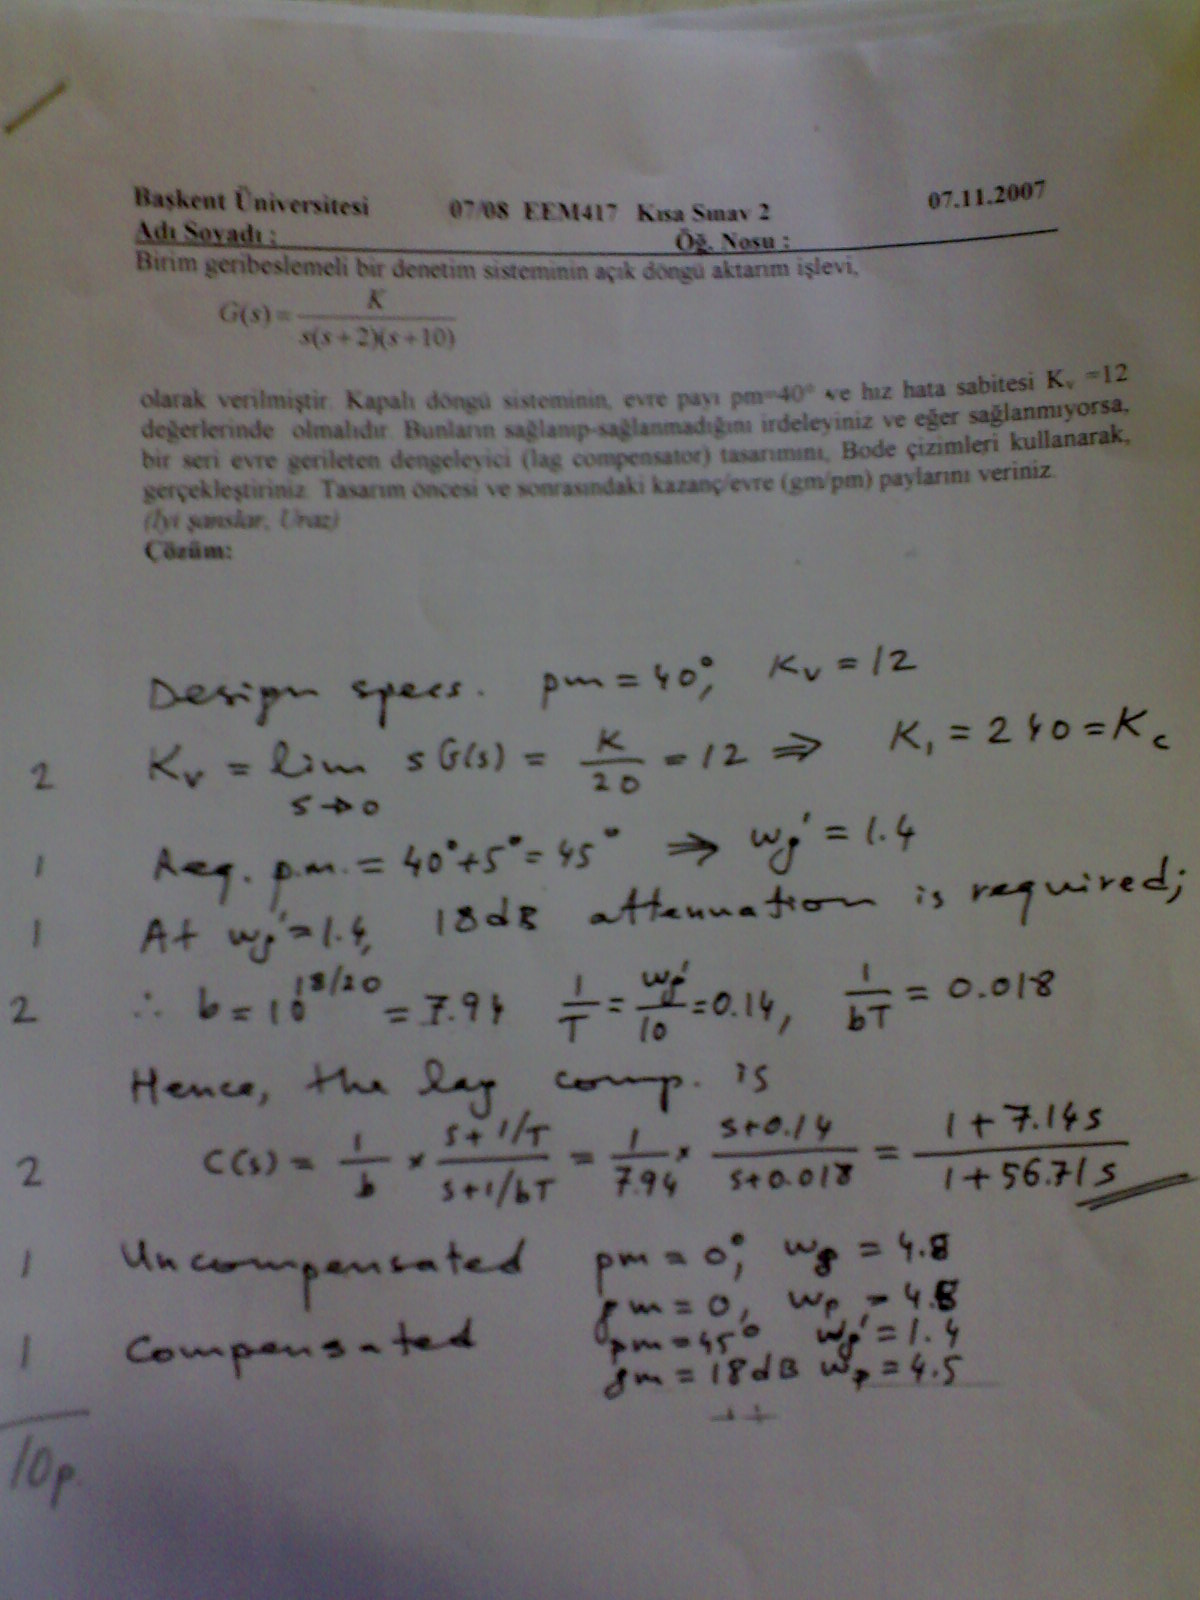 Başkent Üniversitesi 07/08 EEM417 Kısa Sınav 2 07.11.2007
Adı Soyadı : Öğ. Nosu :
Birim geribeslemeli bir denetim sisteminin açık döngü aktarım işlevi,
G(s) = K / s(s+2)(s+10)
olarak verilmiştir. Kapalı döngü sisteminin, evre payı pm=40° ve hız hata sabitesi Kv =12
değerlerinde olmalıdır. Bunların sağlanıp-sağlanmadığını irdeleyiniz ve eğer sağlanmıyorsa,
bir seri evre gerileten dengeleyici (lag compensator) tasarımını, Bode çizimleri kullanarak,
gerçekleştiriniz. Tasarım öncesi ve sonrasındaki kazanç/evre (gm/pm) paylarını veriniz.
(İyi şanslar, Uraz)
Çözüm:
Design specs. pm = 40°; Kv = 12
2 Kv = lim s→0 s G(s) = K/20 = 12 ⇒ K1 = 240 = Kc
1 Req. p.m. = 40°+5° = 45° ⇒ wg' = 1.4
1 At wg' = 1.4, 18dB attenuation is required;
2 ∴ b = 10^18/20 = 7.94 1/T = wg'/10 = 0.14, 1/bT = 0.018
Hence, the lag comp. is
2 C(s) = 1/b * s+1/T / s+1/bT = 1/7.94 * s+0.14 / s+0.018 = 1+7.14s / 1+56.71s
1 Uncompensated pm = 0°; wg = 4.8
gm = 0, wp = 4.8
1 Compensated pm = 45° wg' = 1.4
gm = 18dB wp = 4.5
10p.